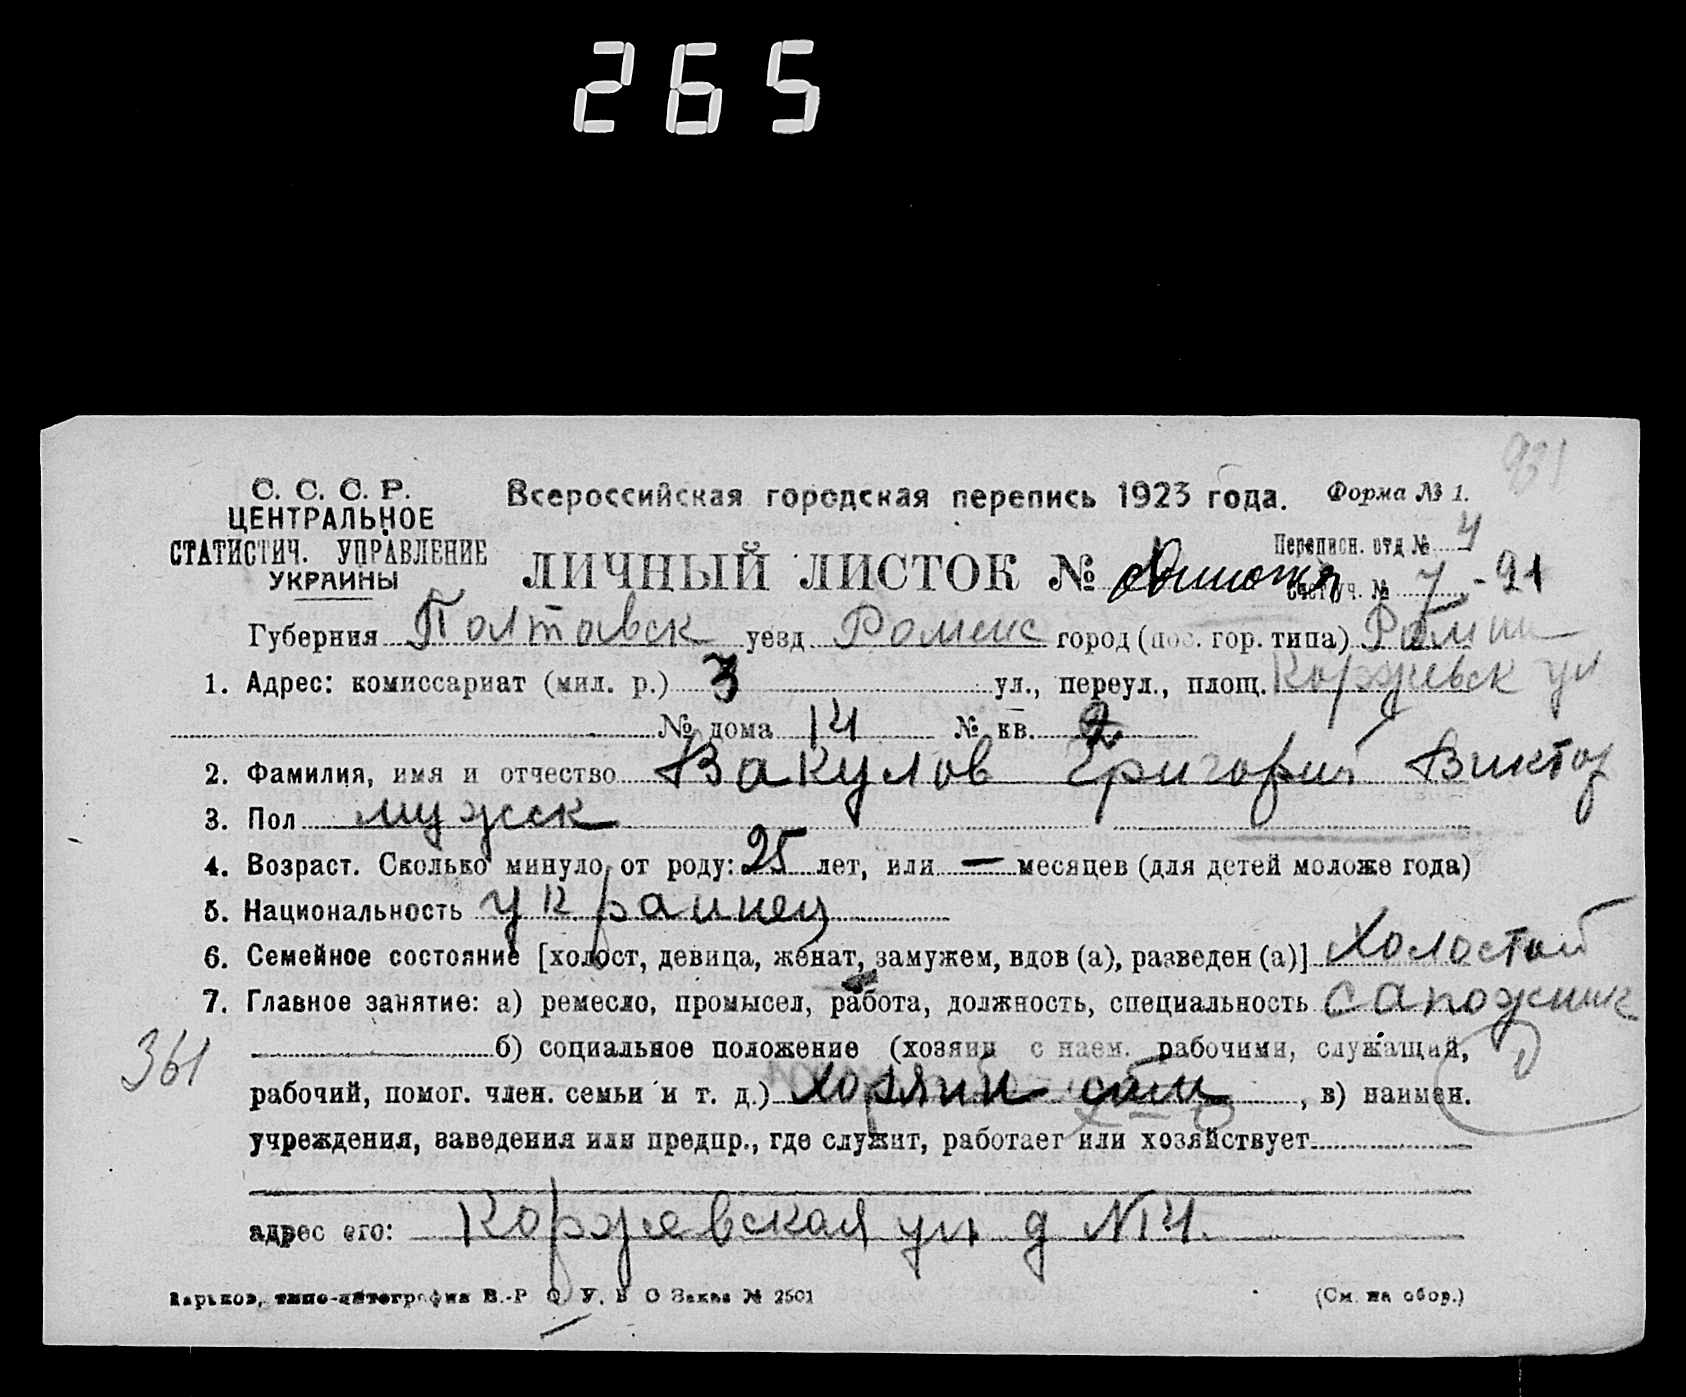 265
931
С. С. С. Р.
ЦЕНТРАЛЬНОЕ
СТАТИСТИЧ. УПРАВЛЕНИЕ
УКРАИНЫ
Всероссийская городская перепись 1923 года.
Форма № 1.
Переписн. отд № 4
ЛИЧНЫЙ ЛИСТОК №
Счетн. уч. № 7 - 21
Губерния Полтавск уезд Роменс город (пос. гор. типа) Ромни
1. Адрес: комиссариат (мил. р.) 3 ул., переул., площ. Коржевск ул
№ дома 14 № кв. 2
2. Фамилия, имя и отчество Вакулов Григорий Виктор
3. Пол мужск
4. Возраст. Сколько минуло от роду: 25 лет, или — месяцев (для детей моложе года)
5. Национальность украинец
6. Семейное состояние [холост, девица, женат, замужем, вдов (а), разведен (а)] Холостой
7. Главное занятие: а) ремесло, промысел, работа, должность, специальность сапожник
361
б) социальное положение (хозяин с наем. рабочими, служащий,
рабочий, помог. член. семьи и т. д.) хозяин , в) наимен.
учреждения, заведения или предпр., где служит, работает или хозяйствует
адрес его: Коржевская ул д N14.
Харьков, типо-литография В.-Р О. У. В О Заказ № 2501
(См. на обор.)